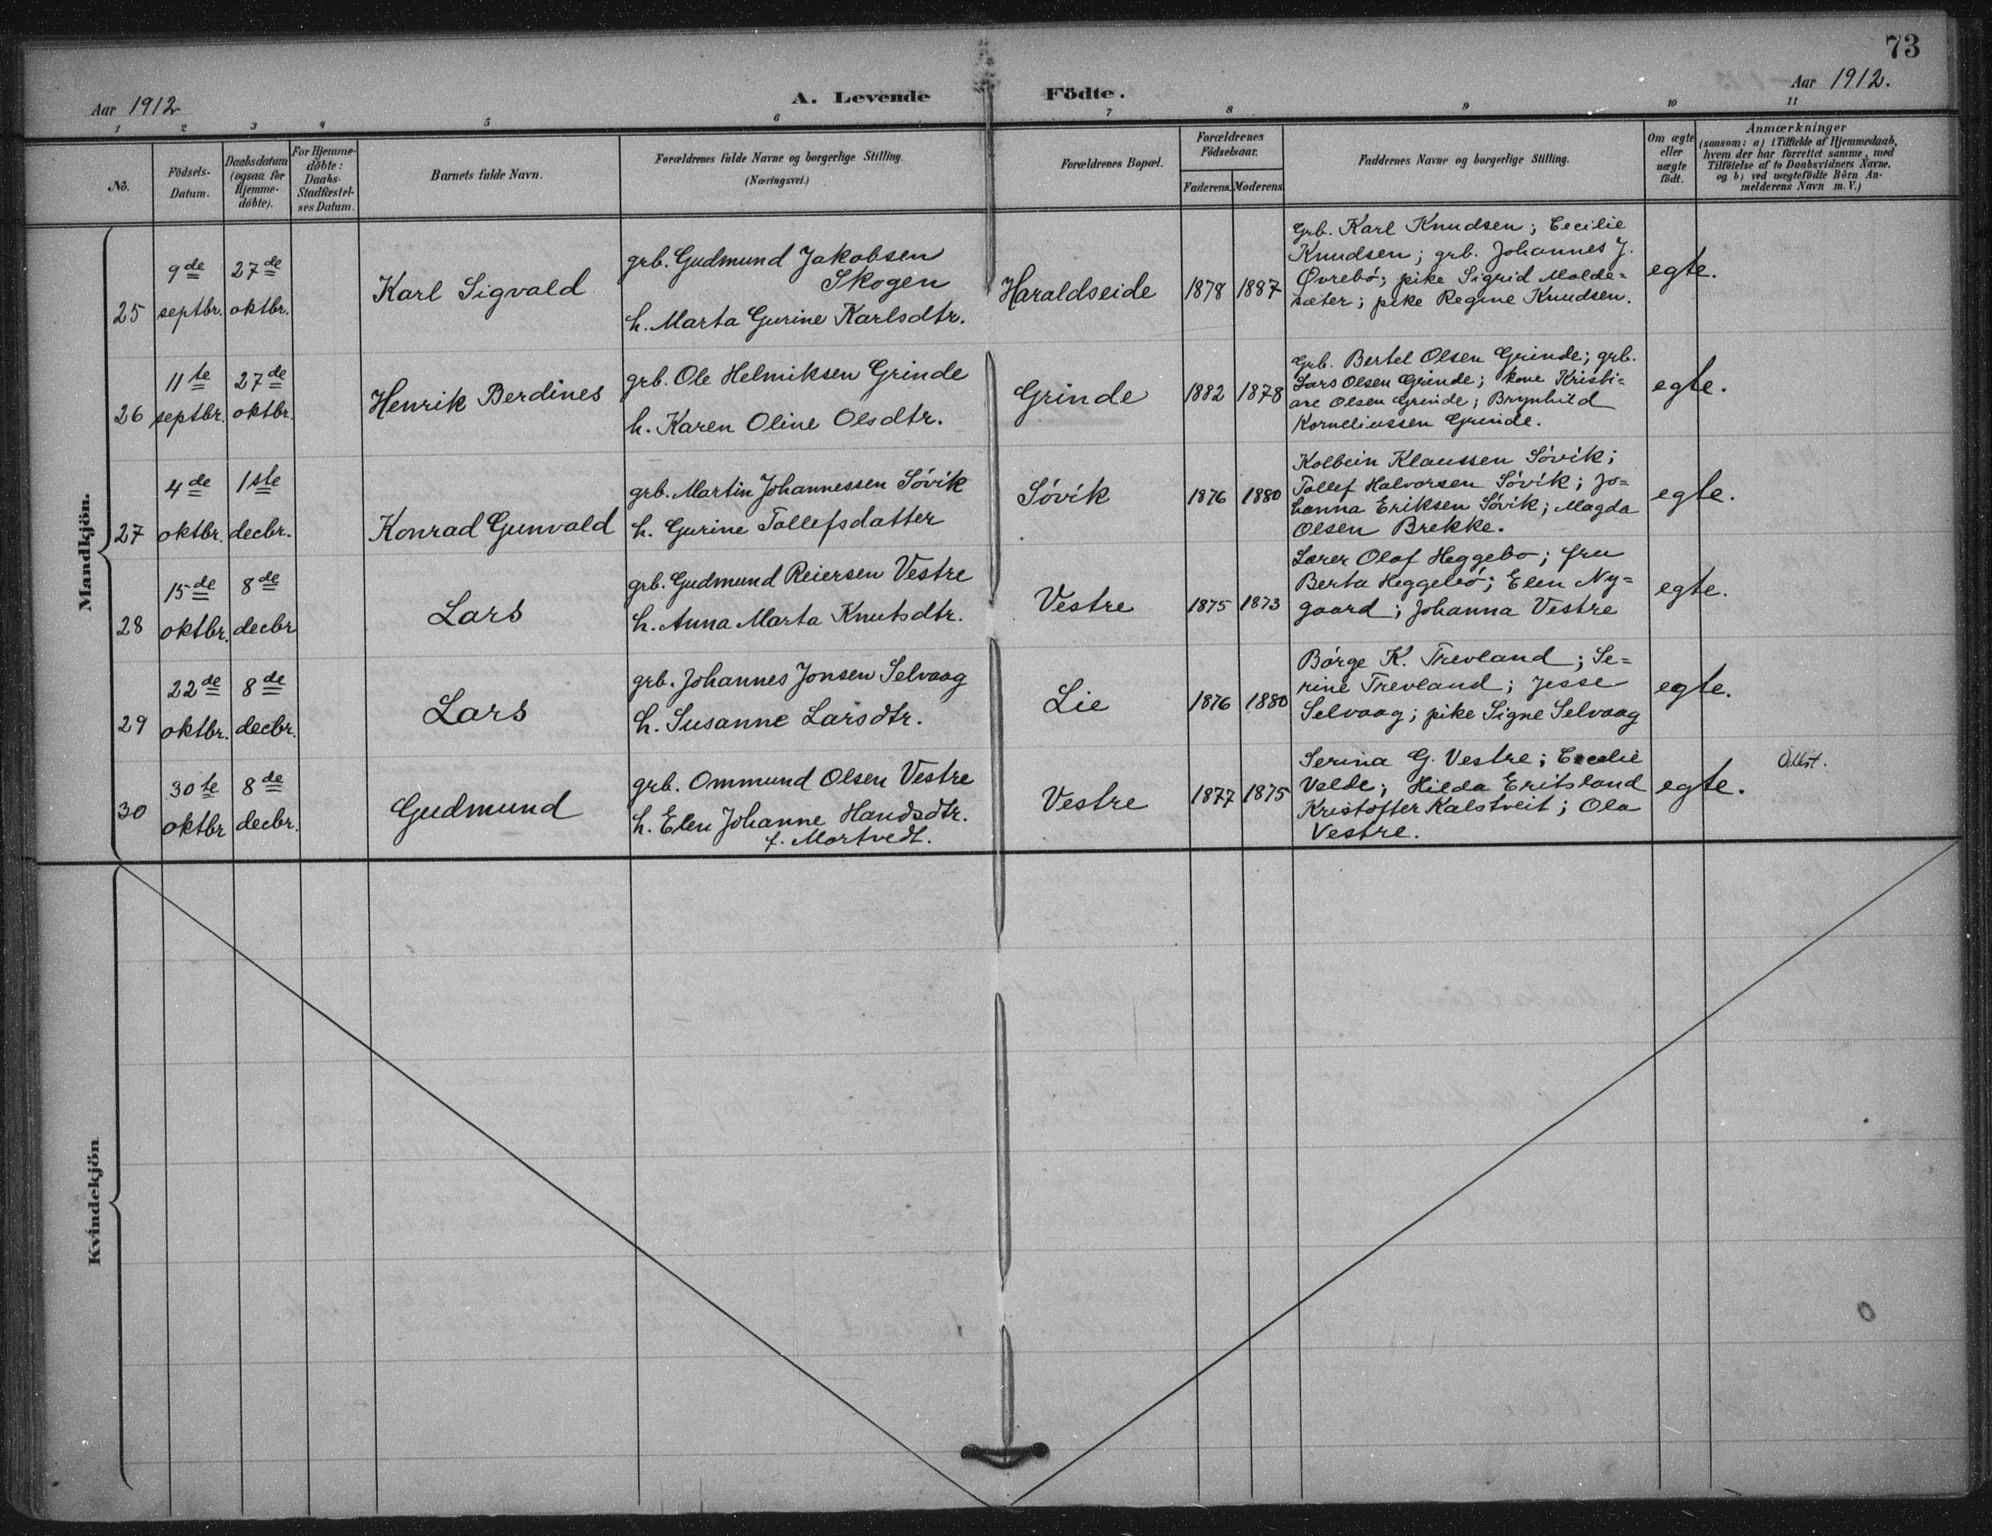 73
Aar 1912
A. Levende
Födte.
Aar 1912.
1 2 3 4 5 6 7 8 9 10 11
No.
Födsels-
Datum.
Daabsdatum
(ogsaa for
Hjemme-
döbte).
For Hjemme-
döbte:
Daabs-
Stadfæstel-
ses Datum.
Barnets fulde Navn.
Forældrenes fulde Navne og borgerlige Stilling.
(Næringsvei.)
Forældrenes Bopæl.
Forældrenes
Födselsaar.
Faderens. Moderens.
Faddernes Navne og borgerlige Stilling.
Om ægte
eller
uægte
födt.
Anmærkninger
(saasom: a) i Tilfælde af Hjemmedaab,
hvem der har forrettet samme, med
Tilföielse af to Daabsvidners Navne,
og b) ved uægtefödte Börn An-
melderens Navn m. V.)
Mandkjön.
25
9de
septbr.
27de
oktbr.
Karl Sigvald
grb. Gudmund Jakobsen
Skogen
h. Marta Gurine Karlsdtr.
Haraldseide
1878 1887
Grb. Karl Knudsen; Cecilie
Knudsen; grb. Johannes J.
Øvrebø; pike Sigrid Molde=
sæter; pike Regine Knudsen.
egte.
26
11te
septbr.
27de
oktbr.
Henrik Berdines
grb. Ole Helmiksen Grinde
h. Karen Oline Olsdtr.
Grinde
1882 1878
Grb. Bertel Olsen Grinde; grb.
Lars Olsen Grinde; kone Kristi=
ane Olsen Grinde; Brynhild
Korneliussen Grinde.
egte.
27
4de
oktbr.
1ste
decbr.
Konrad Gunvald
grb. Martin Johannessen Søvik
h. Gurine Tollefsdatter
Søvik
1876 1880
Kolbein Klaussen Søvik;
Tollef Halvorsen Søvik; Jo=
hanna Eriksen Søvik; Magda
Olsen Brekke.
egte.
28
15de
oktbr.
8de
decbr
Lars
grb. Gudmund Reiersen Vestre
h. Anna Marta Knutsdtr.
Vestre
1875 1873
Lærer Olaf Heggebø; fru
Berta Heggebø; Elen Ny=
gaard; Johanna Vestre
egte.
29
22de
oktbr.
8de
decbr.
Lars
grb. Johannes Jonsen Selvaag
h. Susanne Larsdtr.
Lie
1876 1880
Børge K. Trevland; Se=
rine Trevland; Jesse
Selvaag; pike Signe Selvaag
egte.
30
30te
oktbr
8de
decbr.
Gudmund
grb. Ommund Olsen Vestre
h. Elen Johanne Handsdtr.
f. Mortvedt.
Vestre
1877 1875
Serina G. Vestre; Cecelie
Valde; Hilda Eritsland
Kristoffer Kalstveit; Ola
Vestre.
egte.
Kvindekjön.